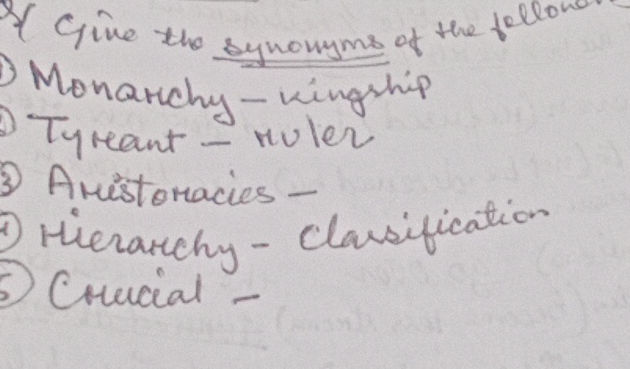 Give the synonyms of the
① Monarchy - kingship
② Tyrant - ruler
③ Aristoracies -
④ Hierarchy - Classification
⑤ Crucial -